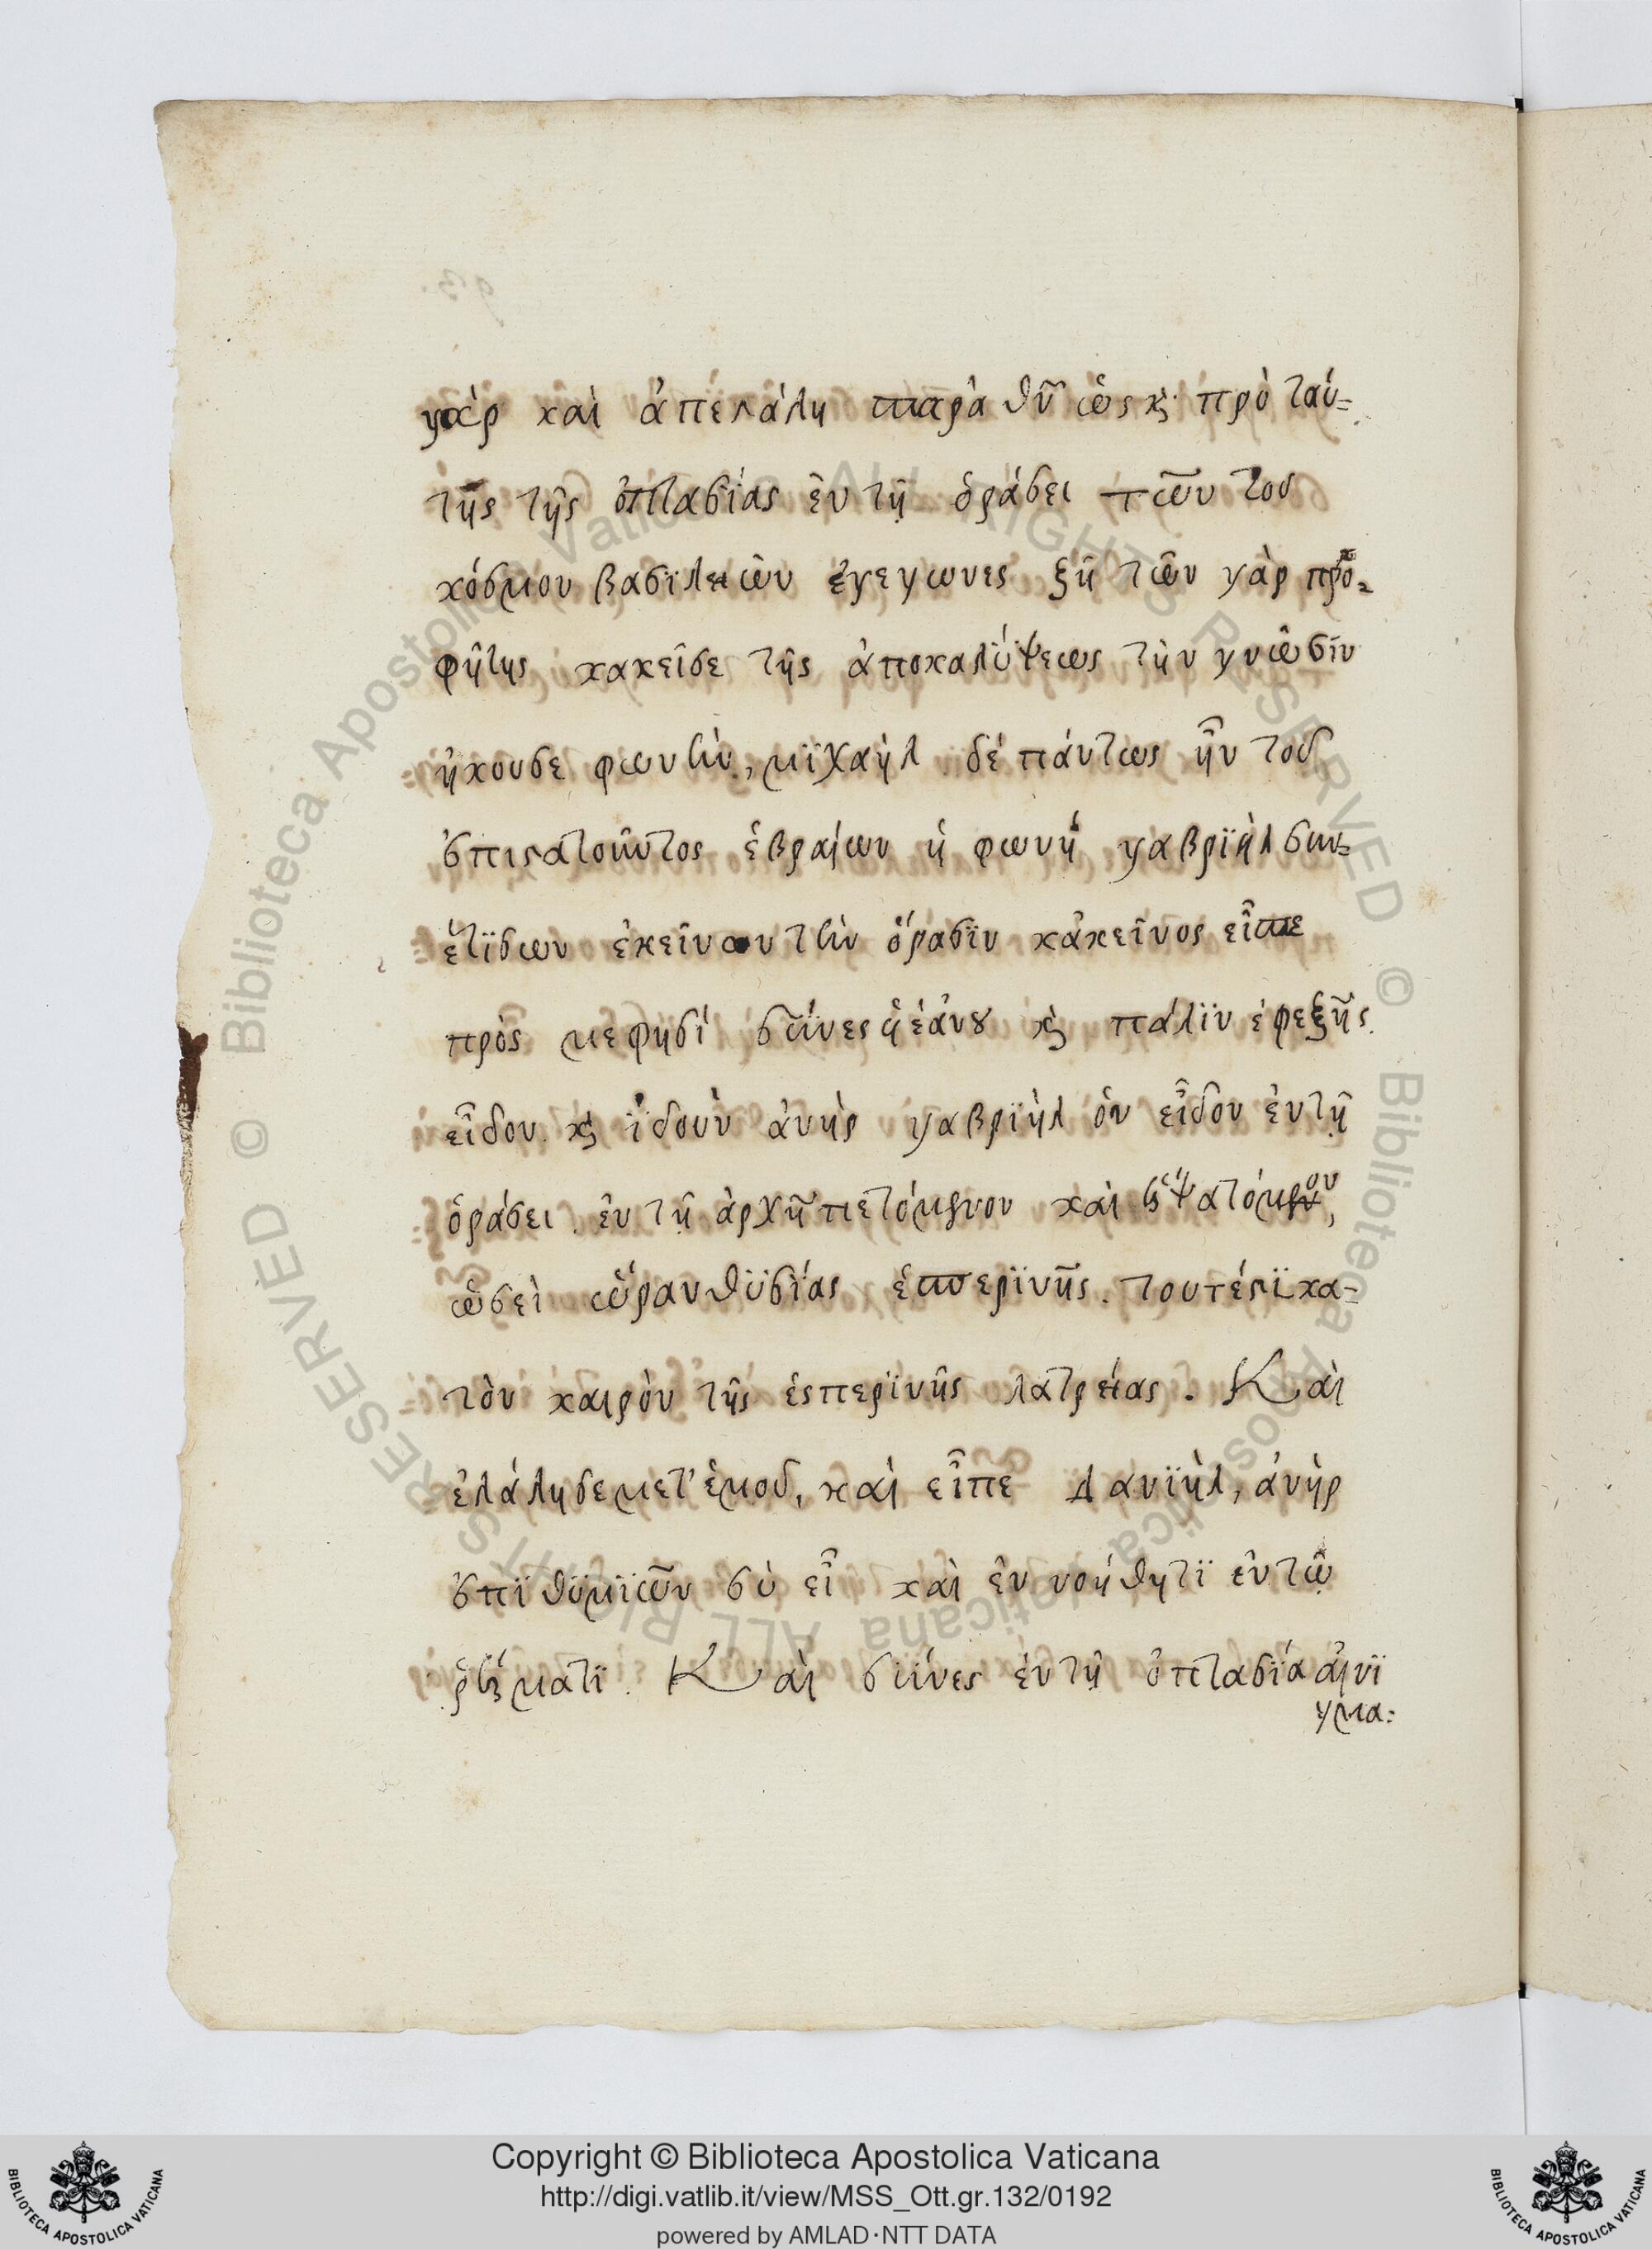 γὰρ καὶ ἀπεστάλη παρὰ θῦ ὡς κ πρὸ ταύ=
της τῆς ὀπτασίας ἐν τῇ ὁράσει τῶν τοῦ
κόσμου βασϊλειῶν ἐγεγωνες ἑξῆ τῶν γὰρ προ=
φήτης κακεῖσε τῆς ἀποκαλΰψεως τὴν γνῶσϊν
ἤκουσε φωνὴν, μϊχαὴλ δὲ πάντως ἦν τοῦ
ἐπιστατοῦντος ἑβραίων ἡ φωνὴ γαβρϊὴλ συν=
έτϊσων ἐκεῖνων τὴν ὅρασϊν κἀκεῖνος εἶπε
πρὸς με φησὶ σύνες ὑὲ ἀνου κ πάλϊν ἐφεξῆς
εἶδον. κ ϊδοὺν ἀνὴρ γαβρϊὴλ ὃν εἶδον ἐν τῇ
ὁράσει. ἐν τῇ ἀρχῇ πετόμενον καὶ ἥψατό μου,
ὡσεὶ ὥραν θϋσίας ἑσπερϊνῆς. τουτέστϊ κα=
τὸν καιρὸν τῆς ἑσπερϊνῆς λατρείας. Καὶ
ἐλάλησε μετ' ἐμοῦ, καὶ εἶπε Δανϊὴλ, ἀνὴρ
ἐπϊθϋμϊῶν σὺ εἶ καὶ ἐν νοήθητϊ ἐν τῷ
ῥήματϊ. Καὶ σύνες ἐν τῇ ὀπτασΐα αἰνϊ
γμα:
Copyright © Biblioteca Apostolica Vaticana
http://digi.vatlib.it/view/MSS_Ott.gr.132/0192
powered by AMLAD·NTT DATA
BIBLIOTECA APOSTOLICA VATICANA
BIBLIOTECA APOSTOLICA VATICANA
© Biblioteca Apostolica Vaticana ALL RIGHTS RESERVED © Biblioteca Apostolica Vaticana ALL RIGHTS RESERVED